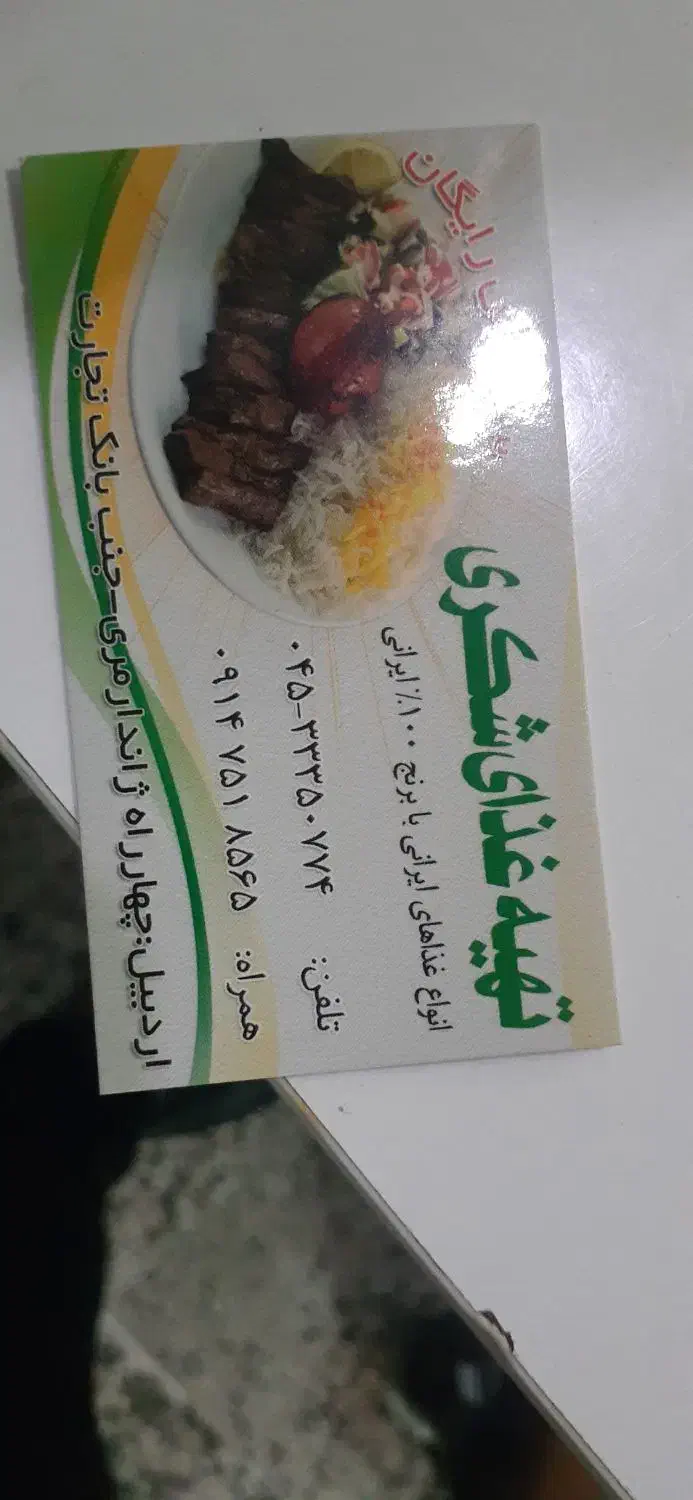 رایگان
تهیه غذای شکری
انواع غذاهای ایرانی با برنج ۱۰۰٪ ایرانی
تلفن: ۰۴۵-۳۳۳۵۰۷۷۴
همراه: ۰۹۱۴ ۷۵۱ ۸۵۶۵
اردبیل:چهارراه ژاندارمری-جنب بانک تجارت